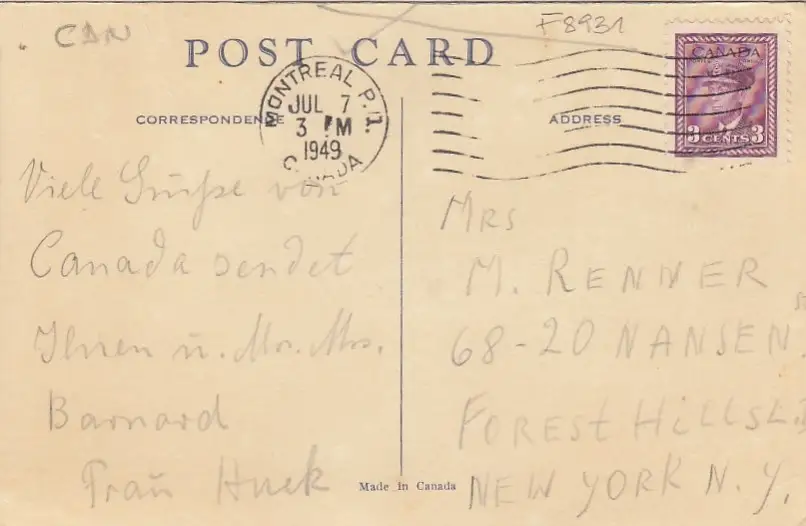 CDN
F8931
POST CARD
CANADA
3 CENTS 3
MONTREAL P.Q.
JUL 7
3 PM
1949
CANADA
CORRESPONDENCE
ADDRESS
Viele Grüße von
Canada sendet
Ihnen u. Mr. Mrs.
Barnard
Frau Huek
MRS
M. RENNER
68-20 NANSEN ST
FOREST HILLS L.I
NEW YORK N.Y.
Made in Canada